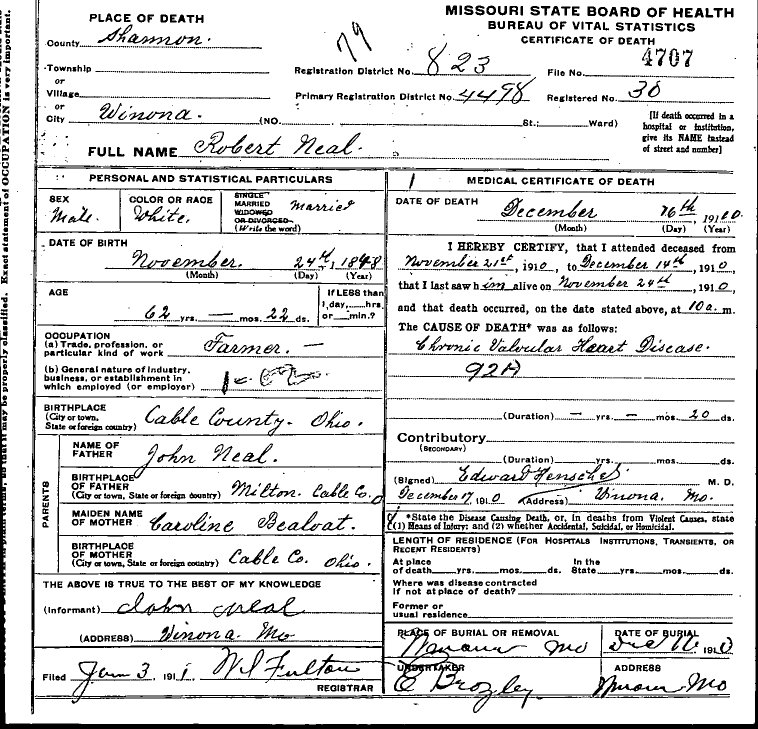 MISSOURI STATE BOARD OF HEALTH
BUREAU OF VITAL STATISTICS
CERTIFICATE OF DEATH
PLACE OF DEATH
County Shannon.
79
4707
Township
or
Village
or
City Winona. (NO. St.; Ward)
Registration District No. 823 File No.
Primary Registration District No. 4498 Registered No. 30
[If death occurred in a
hospital or institution,
give its NAME instead
of street and number]
FULL NAME Robert Neal.
PERSONAL AND STATISTICAL PARTICULARS
SEX
Male.
COLOR OR RACE
White.
SINGLE
MARRIED
WIDOWED
OR DIVORCED
(Write the word)
Married
DATE OF BIRTH
November. 24th, 1848
(Month) (Day) (Year)
AGE
62 yrs. — mos. 22 ds.
If LESS than
1 day, hrs.
or min.?
OCCUPATION
(a) Trade, profession, or
particular kind of work Farmer. —
(b) General nature of industry,
business, or establishment in
which employed (or employer)
BIRTHPLACE
(City or town,
State or foreign country) Cable County. Ohio.
PARENTS
NAME OF
FATHER John Neal.
BIRTHPLACE
OF FATHER
(City or town, State or foreign country) Milton. Cable Co. O
MAIDEN NAME
OF MOTHER Caroline Bealoat.
BIRTHPLACE
OF MOTHER
(City or town, State or foreign country) Cable Co. Ohio.
THE ABOVE IS TRUE TO THE BEST OF MY KNOWLEDGE
(Informant) John Neal
(ADDRESS) Winona Mo
Filed Jan 3, 1911. W I Fulton
REGISTRAR
MEDICAL CERTIFICATE OF DEATH
DATE OF DEATH
December 16th, 1910.
(Month) (Day) (Year)
I HEREBY CERTIFY, that I attended deceased from
November 21st, 1910, to December 14th, 1910,
that I last saw him alive on November 24th, 1910,
and that death occurred, on the date stated above, at 10 a. m.
The CAUSE OF DEATH* was as follows:
Chronic Valvular Heart Disease.
92A
(Duration) — yrs. — mos. 20 ds.
Contributory
(SECONDARY)
(Duration) yrs. mos. ds.
(Signed) Edward Henschel M. D.
December 17, 1910 (Address) Winona. Mo.
*State the Disease Causing Death, or, in deaths from Violent Causes, state
(1) Means of Injury; and (2) whether Accidental, Suicidal, or Homicidal.
LENGTH OF RESIDENCE (FOR HOSPITALS INSTITUTIONS, TRANSIENTS, OR
RECENT RESIDENTS)
At place
of death yrs. mos. ds.
In the
State yrs. mos. ds.
Where was disease contracted
if not at place of death?
Former or
usual residence
PLACE OF BURIAL OR REMOVAL
Winona Mo
DATE OF BURIAL
1910
UNDERTAKER
E Brozley
ADDRESS
Winona Mo
Exact statement of OCCUPATION is very important.
may be properly classified.